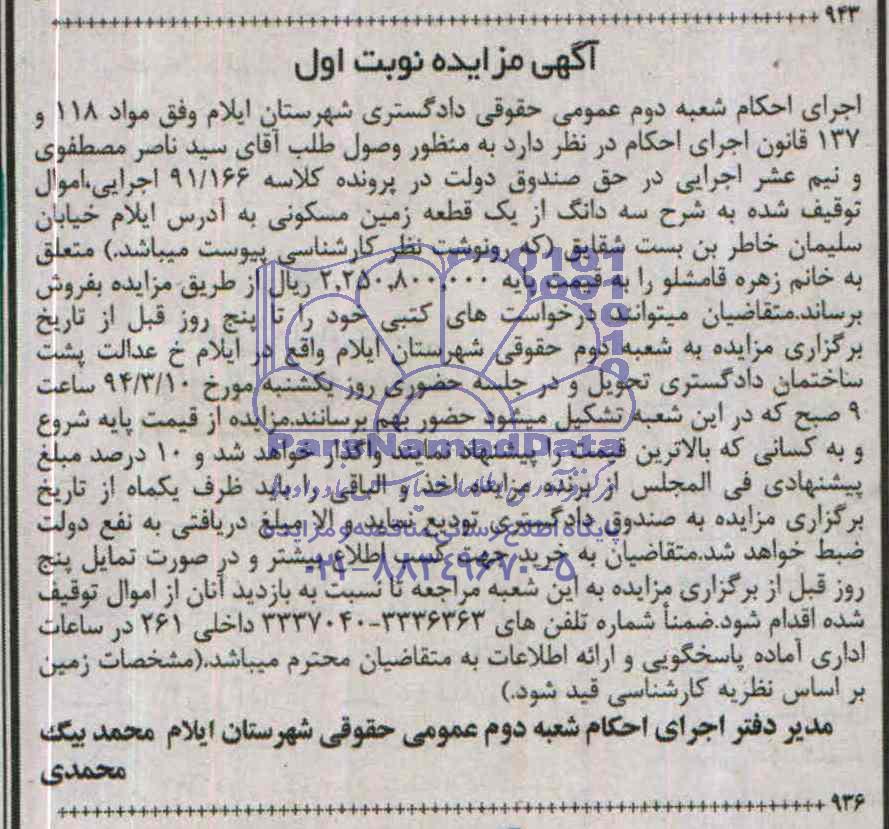 ۹۴۳
آگهی مزایده نوبت اول
اجرای احکام شعبه دوم عمومی حقوقی دادگستری شهرستان ایلام وفق مواد ۱۱۸ و
۱۳۷ قانون اجرای احکام در نظر دارد به منظور وصول طلب آقای سید ناصر مصطفوی
و نیم عشر اجرایی در حق صندوق دولت در پرونده کلاسه ۹۱/۱۶۶ اجرایی،اموال
توقیف شده به شرح سه دانگ از یک قطعه زمین مسکونی به آدرس ایلام خیابان
سلیمان خاطر بن بست شقایق (که رونوشت نظر کارشناسی پیوست میباشد.) متعلق
به خانم زهره قامشلو را به قیمت پایه ۲,۲۵۰,۸۰۰,۰۰۰ ریال از طریق مزایده بفروش
برساند.متقاضیان میتوانند درخواست های کتبی خود را تا پنج روز قبل از تاریخ
برگزاری مزایده به شعبه دوم حقوقی شهرستان ایلام واقع در ایلام خ عدالت پشت
ساختمان دادگستری تحویل و در جلسه حضوری روز یکشنبه مورخ ۹۴/۳/۱۰ ساعت
۹ صبح که در این شعبه تشکیل میشود حضور بهم برسانند.مزایده از قیمت پایه شروع
و به کسانی که بالاترین قیمت را پیشنهاد نمایند واگذار خواهد شد و ۱۰ درصد مبلغ
پیشنهادی فی المجلس از برنده مزایده اخذ و الباقی را باید ظرف یکماه از تاریخ
برگزاری مزایده به صندوق دادگستری تودیع نماید و الا مبلغ دریافتی به نفع دولت
ضبط خواهد شد.متقاضیان به خرید جهت کسب اطلاع بیشتر و در صورت تمایل پنج
روز قبل از برگزاری مزایده به این شعبه مراجعه تا نسبت به بازدید آنان از اموال توقیف
شده اقدام شود.ضمناً شماره تلفن های ۳۳۳۶۳۶۳-۳۳۳۷۰۴۰ داخلی ۲۶۱ در ساعات
اداری آماده پاسخگویی و ارائه اطلاعات به متقاضیان محترم میباشد.(مشخصات زمین
بر اساس نظریه کارشناسی قید شود.)
مدیر دفتر اجرای احکام شعبه دوم عمومی حقوقی شهرستان ایلام محمد بیگ
محمدی
۹۳۶
ParsNamadData
پایگاه اطلاع رسانی مناقصه و مزایده
۰۲۱-۸۸۳۴۹۶۷۰-۵